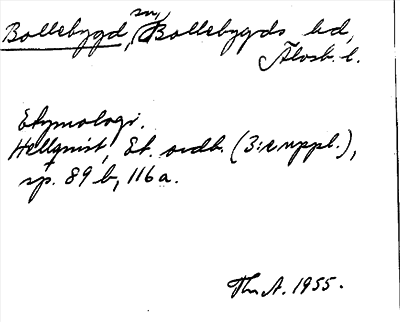 Bollebygd, sn, Bollebygds hd,
Älvsb. l.
Etymologi.
Hellquist, Et. ordb. (3:e uppl.),
sp. 89 b, 116 a.
Th. A. 1955.